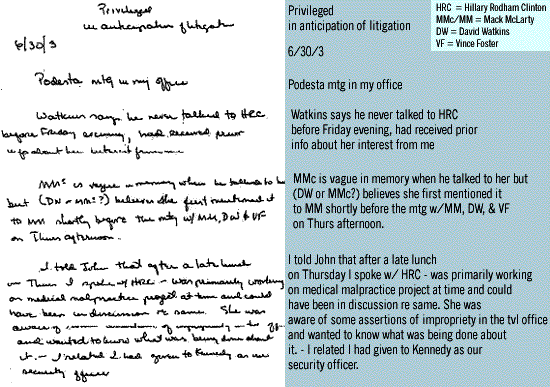 Privileged
in anticipation of litigation
6/30/3
Podesta mtg in my office
Watkins says he never talked to HRC
before Friday evening, had received prior
info about her interest from me
MMc is vague in memory when he talked to he
but (DW or MMc?) believes she first mentioned it
to MM shortly before the mtg w/ MM, DW & VF
on Thurs afternoon.
I told John that after a late lunch
on Thurs I spoke w/ HRC - was primarily working
on medical malpractice project at time and could
have been in discussion re same. She was
aware of some of impropriety
and wanted to know what was being done about
it. - I related I had given to Kennedy as our
security officer
HRC = Hillary Rodham Clinton
MMc/MM = Mack McLarty
DW = David Watkins
VF = Vince Foster
Privileged
in anticipation of litigation
6/30/3
Podesta mtg in my office
Watkins says he never talked to HRC
before Friday evening, had received prior
info about her interest from me
MMc is vague in memory when he talked to her but
(DW or MMc?) believes she first mentioned it
to MM shortly before the mtg w/MM, DW, & VF
on Thurs afternoon.
I told John that after a late lunch
on Thursday I spoke w/ HRC - was primarily working
on medical malpractice project at time and could
have been in discussion re same. She was
aware of some assertions of impropriety in the tvl office
and wanted to know what was being done about
it. - I related I had given to Kennedy as our
security officer.